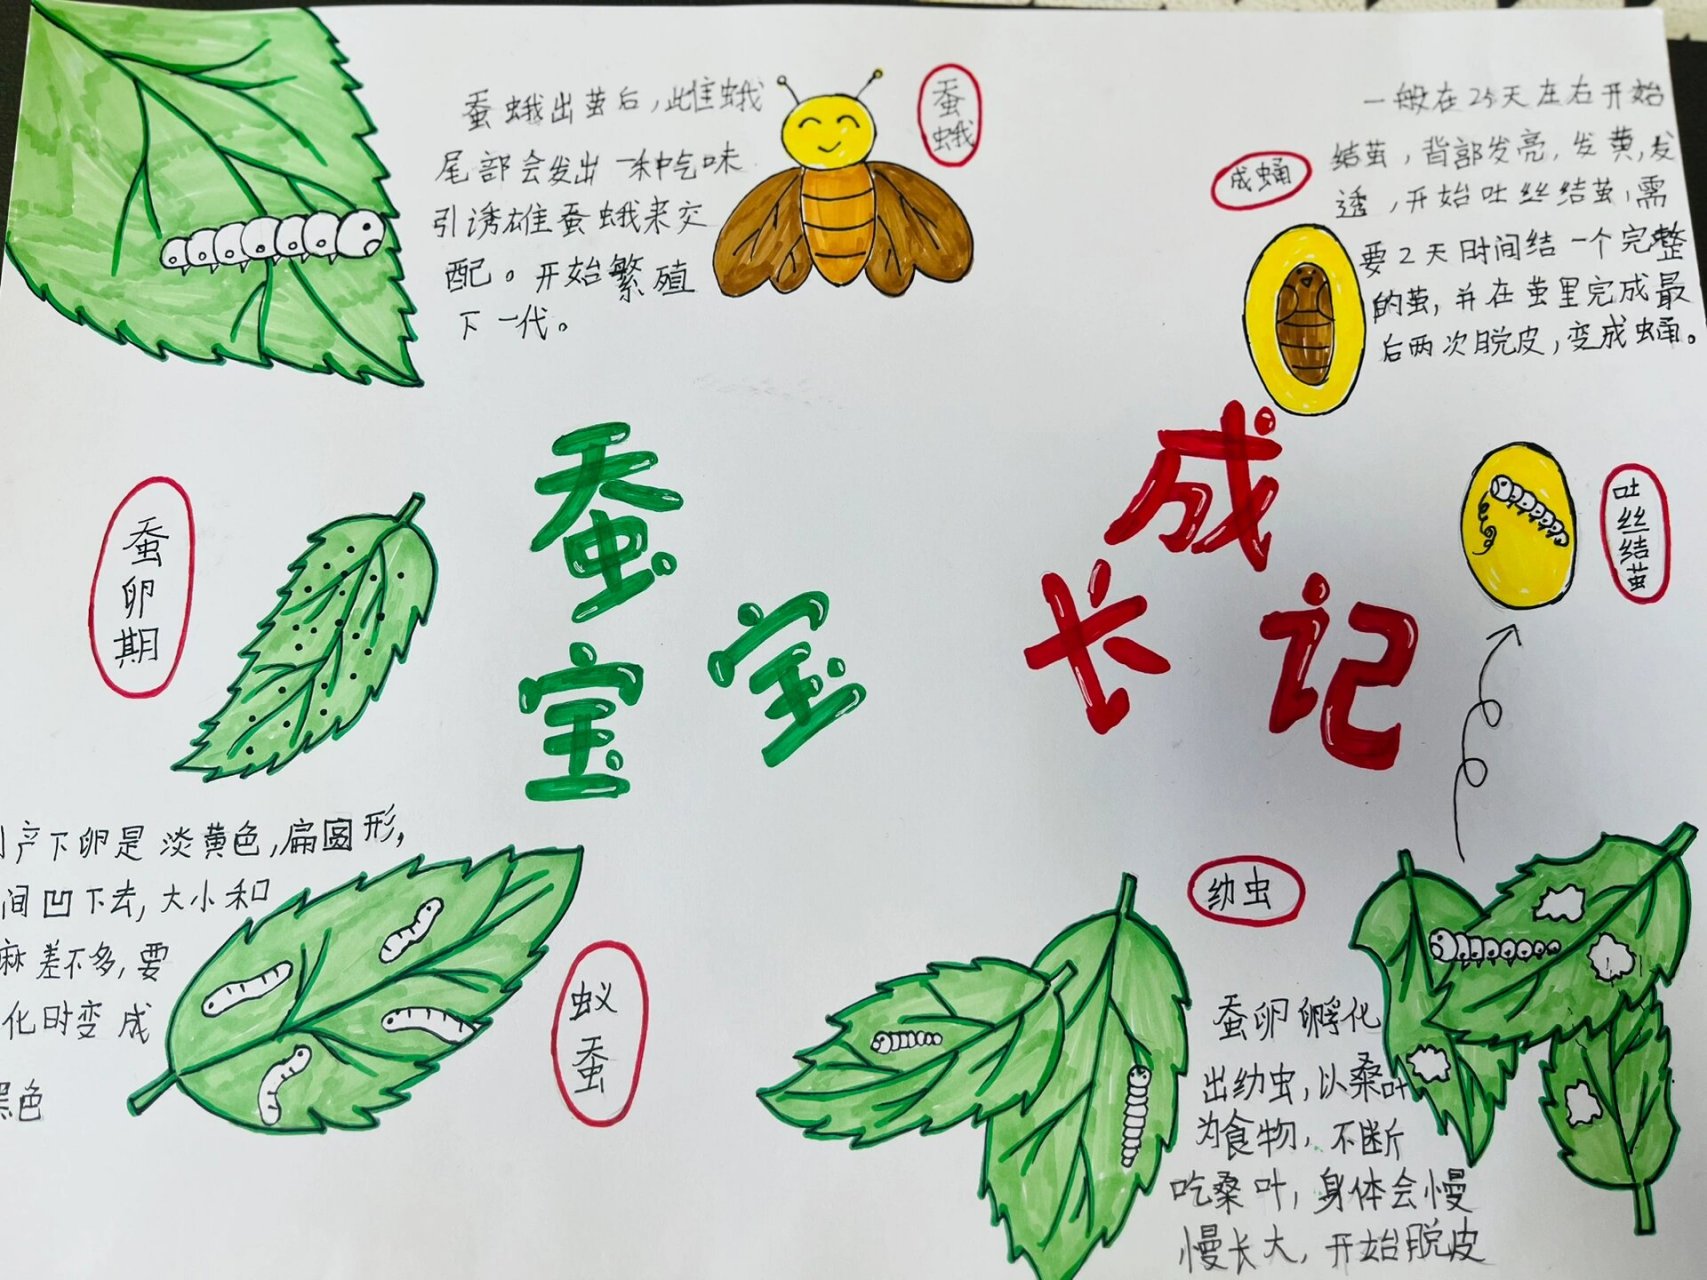 蚕蛾出茧后,此隹蛾
尾部会发出一种吃味
引诱雄蚕蛾来交
配。开始繁殖
下一代。
蚕
蛾
成蛹
一般在25天左右开始
结茧,背部发亮,发黄,发
透,开始吐丝结茧,需
要2天时间结一个完整
的茧,并在茧里完成最
后两次脱皮,变成蛹。
蚕
宝
宝
成
长
记
吐
丝
结
茧
蚕
卵
期
产下卵是淡黄色,扁圆形,
间凹下去,大小和
麻差不多,要
化时变成
黑色
蚁
蚕
幼虫
蚕卵孵化
出幼虫,以桑叶
为食物,不断
吃桑叶,身体会慢
慢长大,开始脱皮